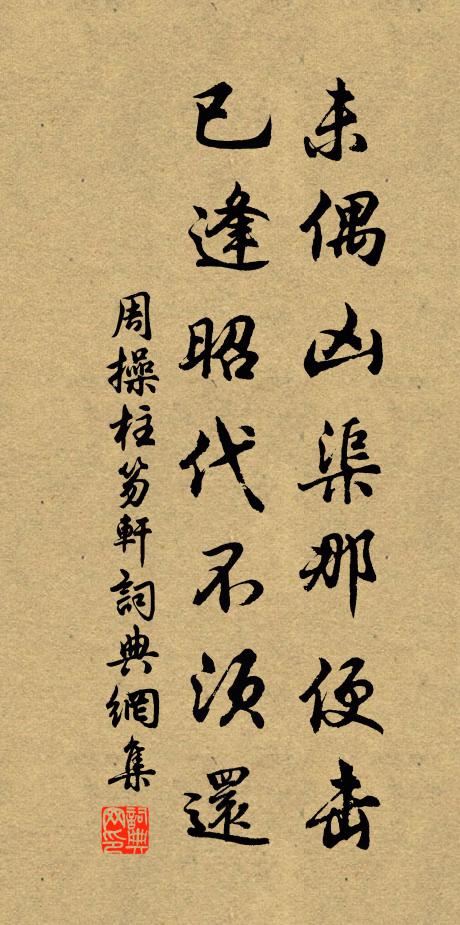 未偶凶渠那便击
已逢昭代不须還
周操柱笏軒詞典網集
詞典
网印